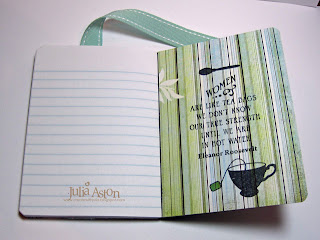 WOMEN
ARE LIKE TEA BAGS
WE DON'T KNOW
OUR TRUE STRENGTH
UNTIL WE ARE
IN HOT WATER!
Eleanor Roosevelt
Julia Aston